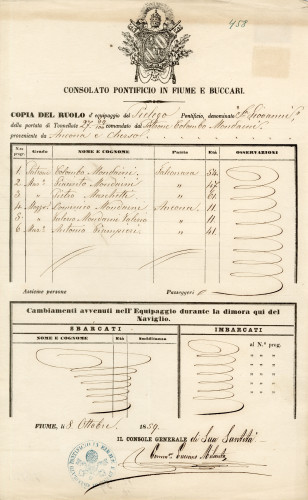 458
CONSOLATO PONTIFICIO IN FIUME E BUCCARI.
COPIA DEL RUOLO d'equipaggio del Pielego Pontificio, denominato "S. Giovanni"
della portata di Tonnellate 27.22 comandato dal Padrone Colombo Mondaini,
proveniente da Ancona e Cherso
Num. prog. Grado NOME E COGNOME Patria Età OSSERVAZIONI
1 Padrone Colombo Mondaini 54
2 Mar.° Giacinto Mondaini " 47
3 " " 61
4 Mozzo Domenico Mondaini Ancona 11
5 " Mondaini " 11
6 Mar.° Antonio " 41
Assieme persone Passeggeri
Cambiamenti avvenuti nell'Equipaggio durante la dimora qui del
Naviglio.
SBARCATI IMBARCATI
NOME E COGNOME Età Sudditanza
al N.° prog.
" " "
" " "
" " "
" " "
FIUME, li 8 Ottobre 1859.
IL CONSOLE GENERALE di Sua Santità